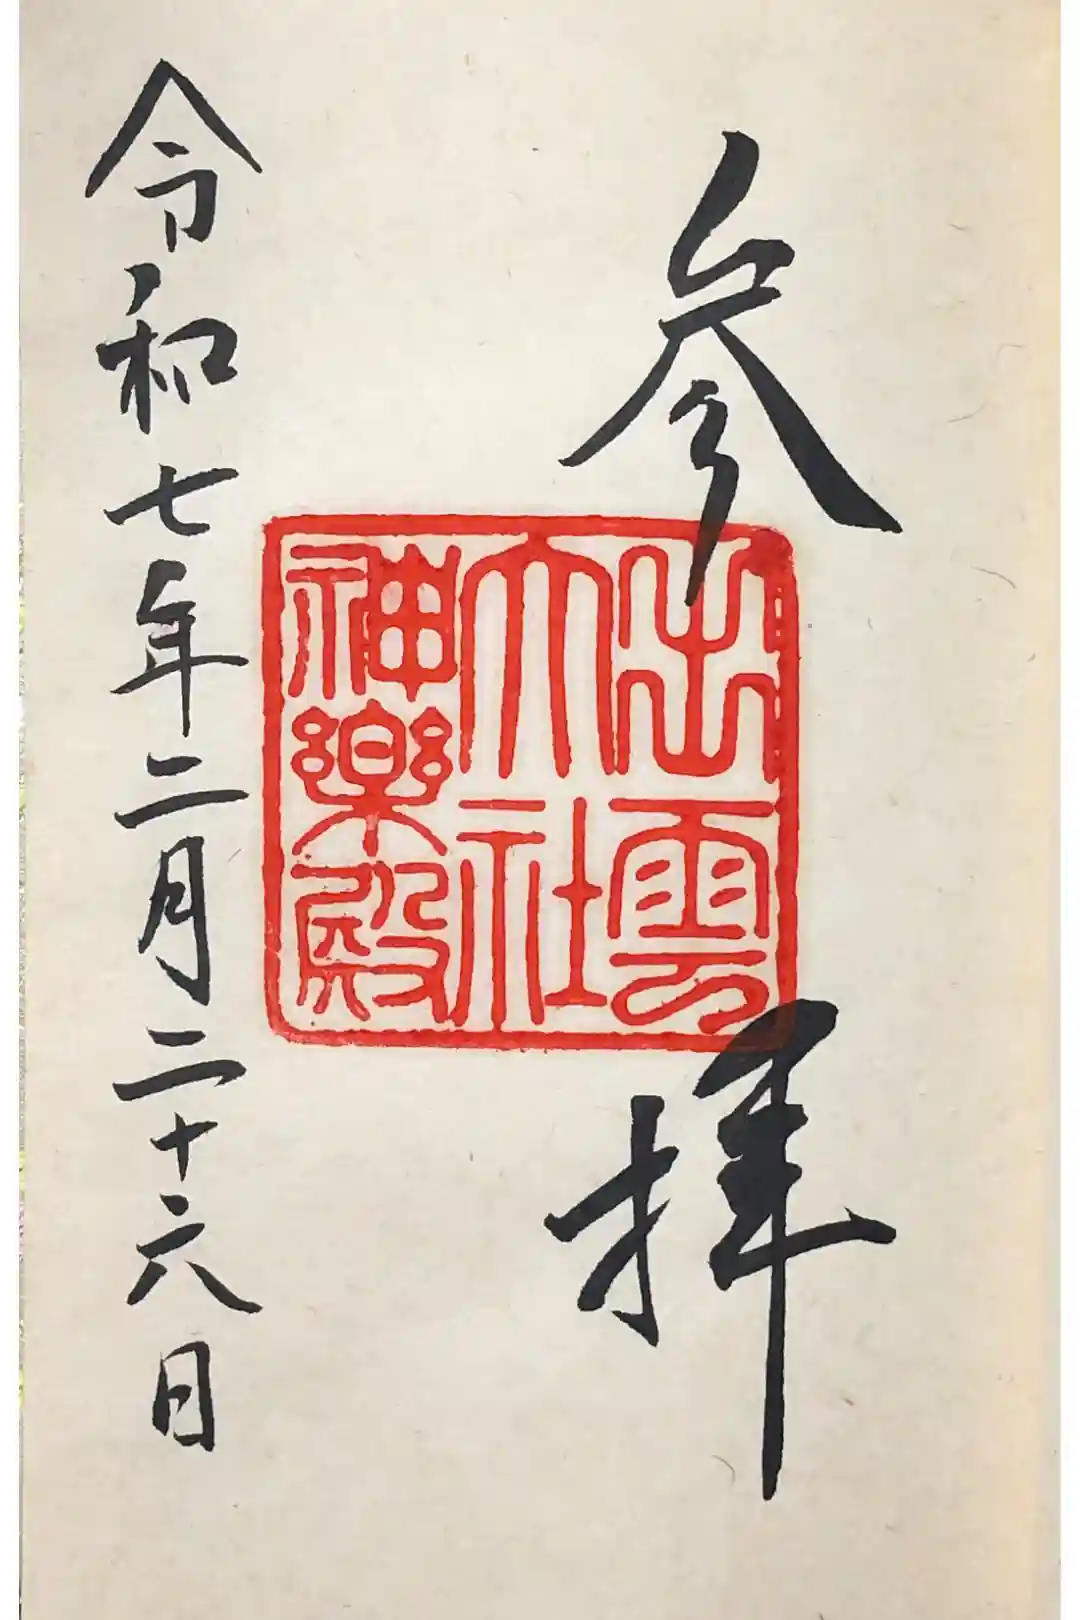 参拝
出雲
大社
神楽殿
令和七年二月二十六日